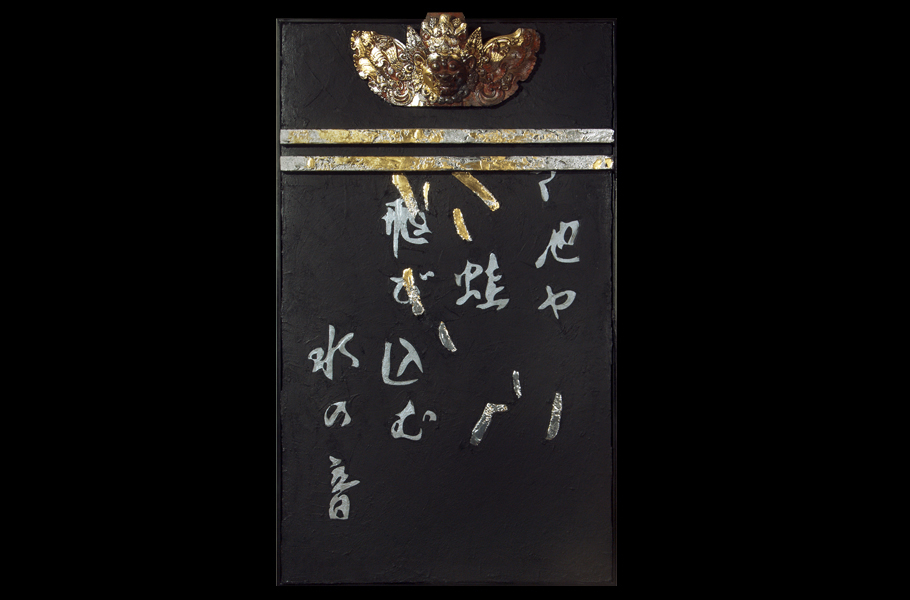 池や
蛙
飛び込む
水の音